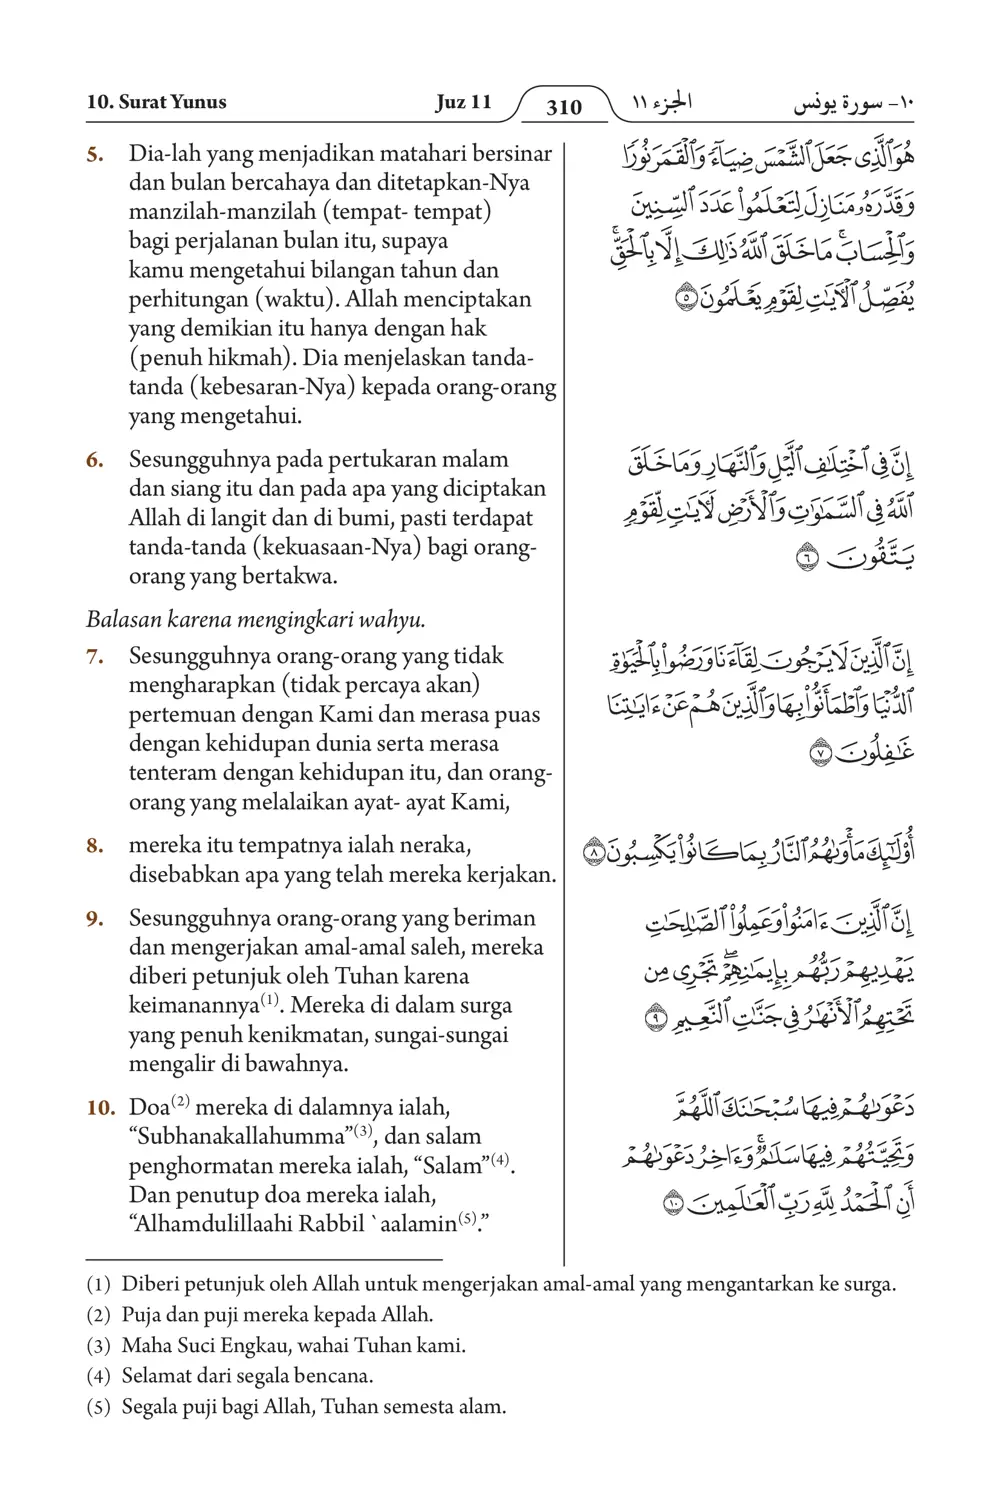 10. Surat Yunus
Juz 11
310
الجزء ١١
١٠- سورة يونس
5. Dia-lah yang menjadikan matahari bersinar
dan bulan bercahaya dan ditetapkan-Nya
manzilah-manzilah (tempat- tempat)
bagi perjalanan bulan itu, supaya
kamu mengetahui bilangan tahun dan
perhitungan (waktu). Allah menciptakan
yang demikian itu hanya dengan hak
(penuh hikmah). Dia menjelaskan tanda-
tanda (kebesaran-Nya) kepada orang-orang
yang mengetahui.
هُوَ ٱلَّذِى جَعَلَ ٱلشَّمْسَ ضِيَآءً وَٱلْقَمَرَ نُورًا
وَقَدَّرَهُۥ مَنَازِلَ لِتَعْلَمُوا۟ عَدَدَ ٱلسِّنِينَ
وَٱلْحِسَابَ ۚ مَا خَلَقَ ٱللَّهُ ذَٰلِكَ إِلَّا بِٱلْحَقِّ ۚ
يُفَصِّلُ ٱلْـَٔايَـٰتِ لِقَوْمٍ يَعْلَمُونَ ٥
6. Sesungguhnya pada pertukaran malam
dan siang itu dan pada apa yang diciptakan
Allah di langit dan di bumi, pasti terdapat
tanda-tanda (kekuasaan-Nya) bagi orang-
orang yang bertakwa.
إِنَّ فِى ٱخْتِلَـٰفِ ٱلَّيْلِ وَٱلنَّهَارِ وَمَا خَلَقَ
ٱللَّهُ فِى ٱلسَّمَـٰوَٰتِ وَٱلْأَرْضِ لَـَٔايَـٰتٍ لِّقَوْمٍ
يَتَّقُونَ ٦
Balasan karena mengingkari wahyu.
7. Sesungguhnya orang-orang yang tidak
mengharapkan (tidak percaya akan)
pertemuan dengan Kami dan merasa puas
dengan kehidupan dunia serta merasa
tenteram dengan kehidupan itu, dan orang-
orang yang melalaikan ayat- ayat Kami,
إِنَّ ٱلَّذِينَ لَا يَرْجُونَ لِقَآءَنَا وَرَضُوا۟ بِٱلْحَيَوٰةِ
ٱلدُّنْيَا وَٱطْمَأَنُّوا۟ بِهَا وَٱلَّذِينَ هُمْ عَنْ ءَايَـٰتِنَا
غَـٰفِلُونَ ٧
8. mereka itu tempatnya ialah neraka,
disebabkan apa yang telah mereka kerjakan.
أُو۟لَـٰٓئِكَ مَأْوَىٰهُمُ ٱلنَّارُ بِمَا كَانُوا۟ يَكْسِبُونَ ٨
9. Sesungguhnya orang-orang yang beriman
dan mengerjakan amal-amal saleh, mereka
diberi petunjuk oleh Tuhan karena
keimanannya(1). Mereka di dalam surga
yang penuh kenikmatan, sungai-sungai
mengalir di bawahnya.
إِنَّ ٱلَّذِينَ ءَامَنُوا۟ وَعَمِلُوا۟ ٱلصَّـٰلِحَـٰتِ
يَهْدِيهِمْ رَبُّهُم بِإِيمَـٰنِهِمْ ۖ تَجْرِى مِن
تَحْتِهِمُ ٱلْأَنْهَـٰرُ فِى جَنَّـٰتِ ٱلنَّعِيمِ ٩
10. Doa(2) mereka di dalamnya ialah,
“Subhanakallahumma”(3), dan salam
penghormatan mereka ialah, “Salam”(4).
Dan penutup doa mereka ialah,
“Alhamdulillaahi Rabbil `aalamin(5).”
دَعْوَىٰهُمْ فِيهَا سُبْحَـٰنَكَ ٱللَّهُمَّ
وَتَحِيَّتُهُمْ فِيهَا سَلَـٰمٌ ۚ وَءَاخِرُ دَعْوَىٰهُمْ
أَنِ ٱلْحَمْدُ لِلَّهِ رَبِّ ٱلْعَـٰلَمِينَ ١٠
(1) Diberi petunjuk oleh Allah untuk mengerjakan amal-amal yang mengantarkan ke surga.
(2) Puja dan puji mereka kepada Allah.
(3) Maha Suci Engkau, wahai Tuhan kami.
(4) Selamat dari segala bencana.
(5) Segala puji bagi Allah, Tuhan semesta alam.